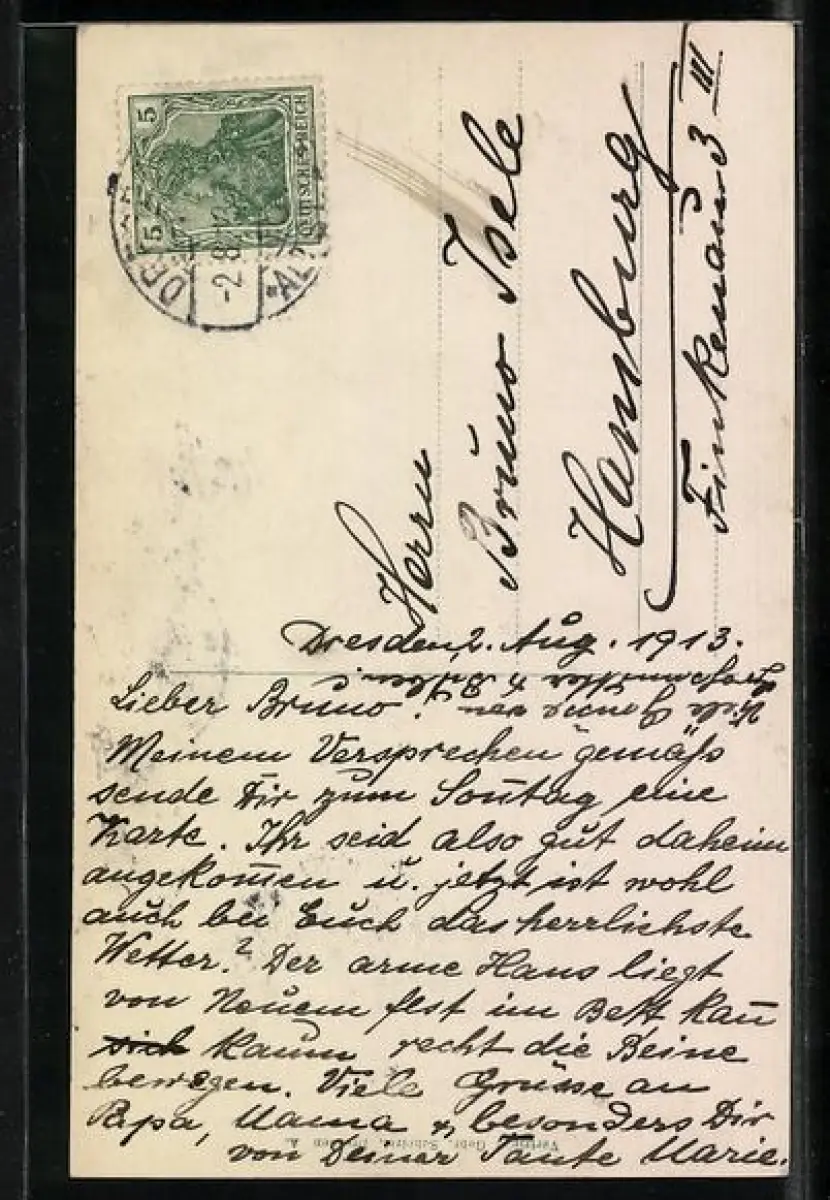 5 5
DEUTSCHES REICH
DRE
-2.8.
*AL
Herrn
Bruno Isele
Hamburg
Finkenau 3 III
Dresden, 2. Aug. 1913.
Lieber Bruno!
Meinem Versprechen gemäss
sende Dir zum Son̄tag eine
Karte. Ihr seid also gut daheim
angekom̄en u. jetzt ist wohl
auch bei Euch das herrlichste
Wetter? Der arme Hans liegt
von Neuem fest im Bett kan̄
sich kaum recht die Beine
bewegen. Viele Grüsse an
Papa, Mama & besonders Dir
von Deiner Tante Marie.
Vertrieb Gebr.